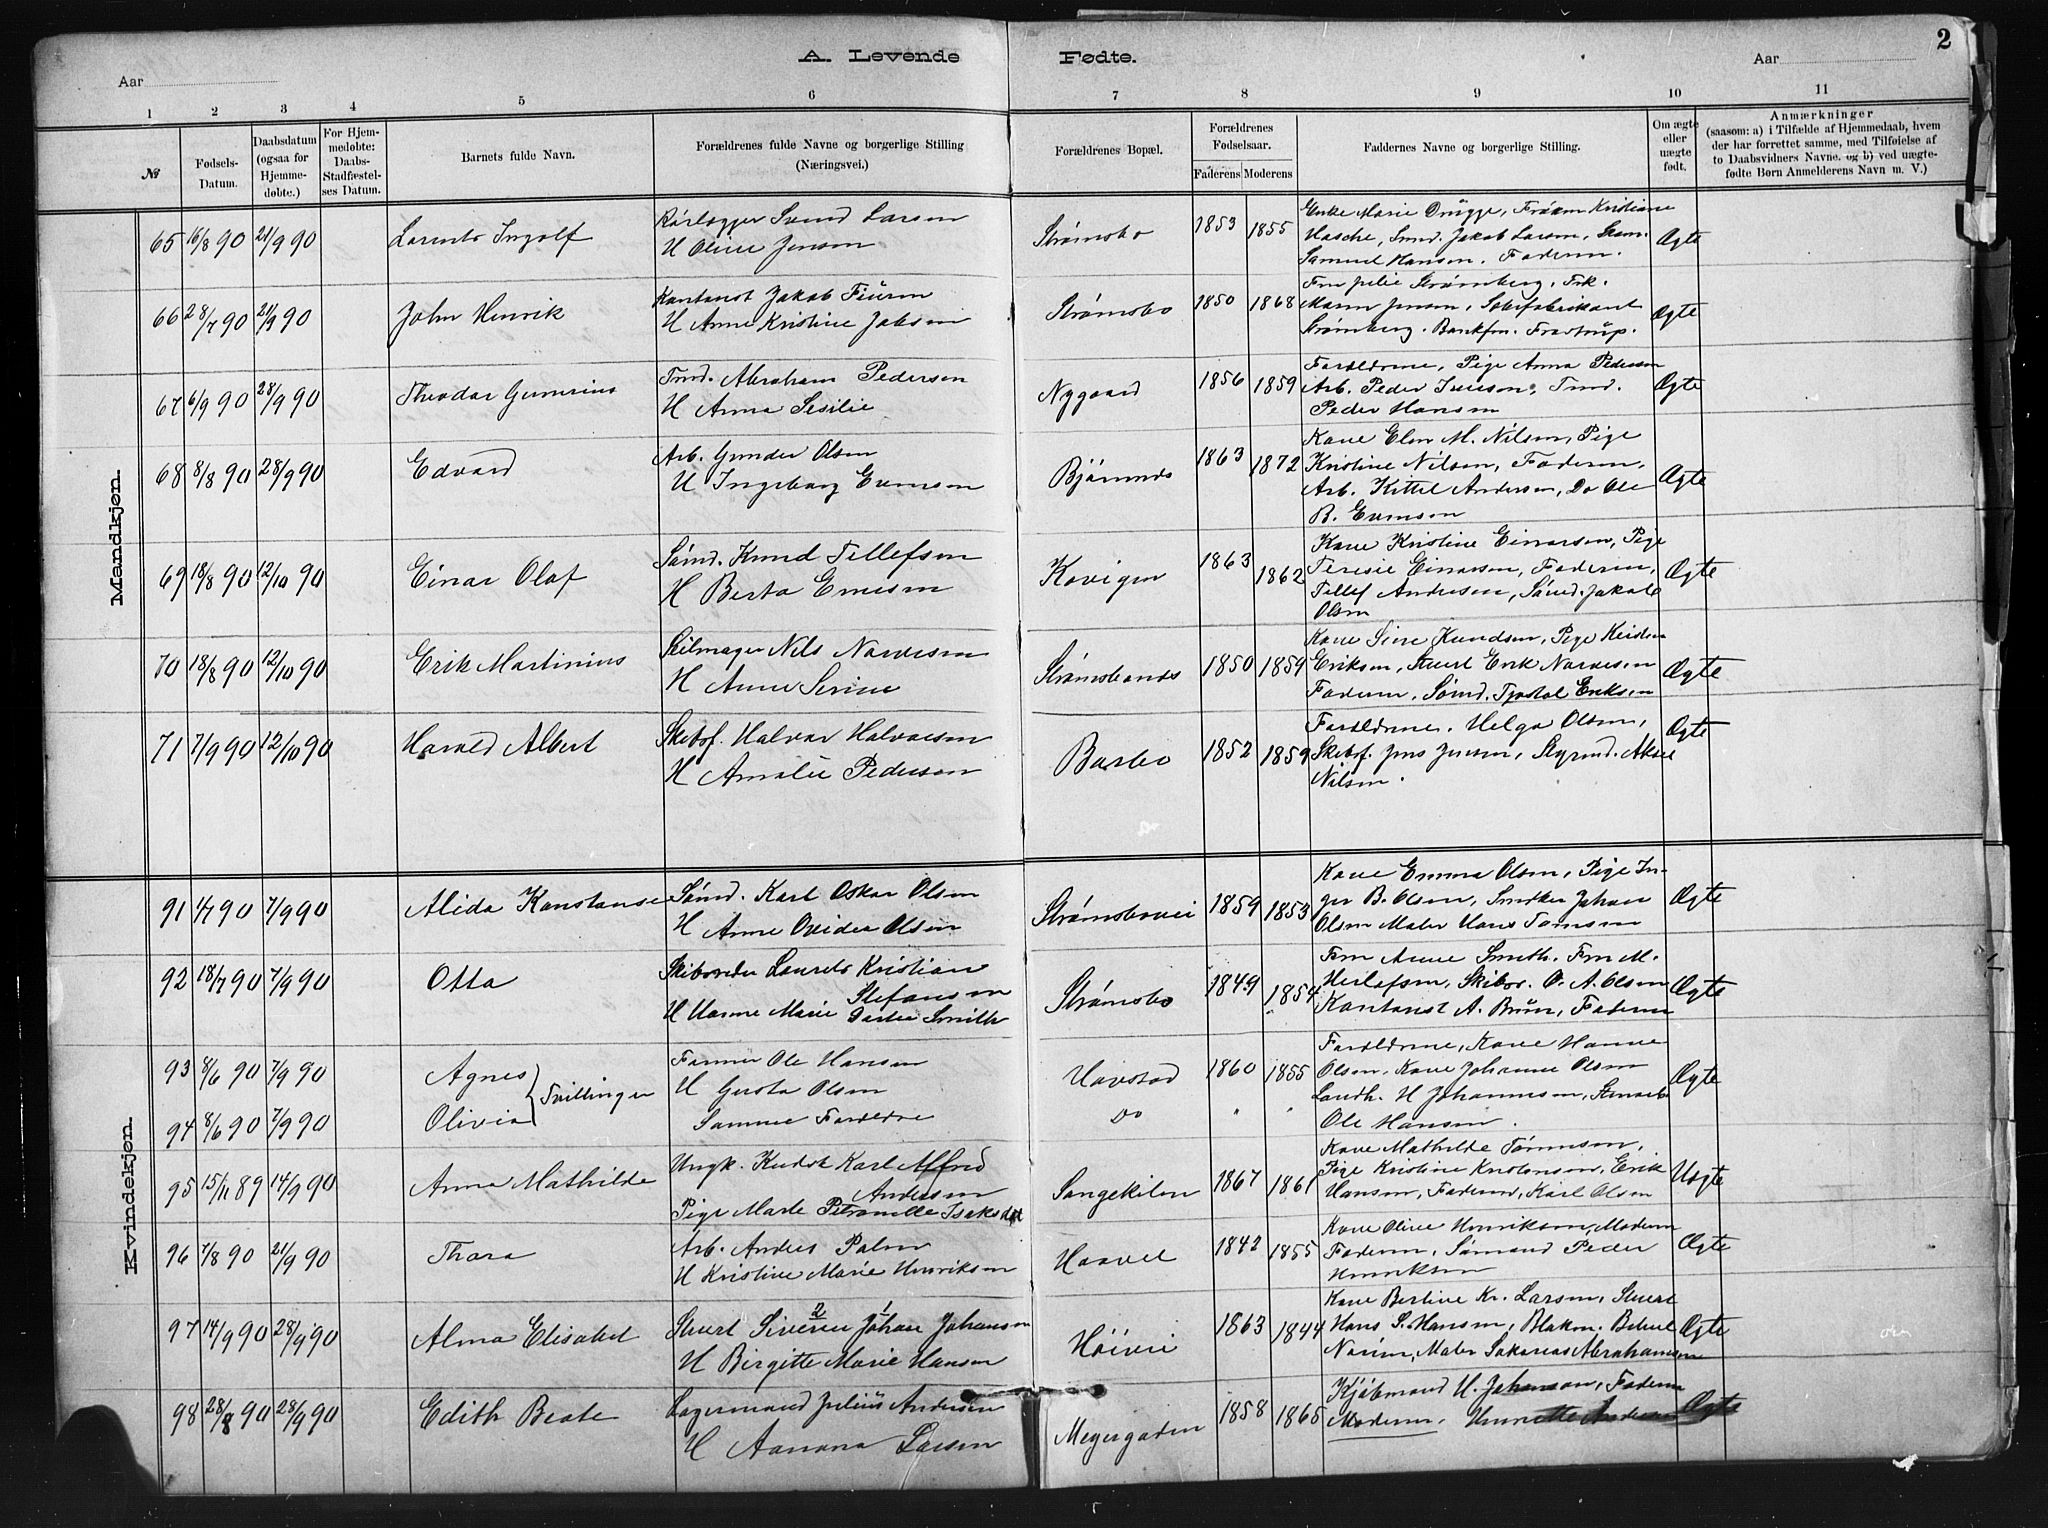 2
A. Levende Fødte.
Aar Aar
1 2 3 4 5 6 7 8 9 10 11
№
Fødsels-Datum.
Daabsdatum (ogsaa for Hjemme-døbte.)
For Hjem-medøbte: Daabs-Stadfæstel-ses Datum.
Barnets fulde Navn.
Forældrenes fulde Navne og borgerlige Stilling (Næringsvei.)
Forældrenes Bopæl.
Forældrenes Fødselsaar.
Faderens Moderens
Faddernes Navne og borgerlige Stilling.
Om ægte eller uægte født.
Anmærkninger
(saasom: a) i Tilfælde af Hjemmedaab, hvem
der har forrettet samme, med Tilføielse af
to Daabsvidners Navne. og b) ved uægte-
fødte Børn Anmelderens Navn m. V.)
Mandkjøn.
65 16/8 90 21/9 90 Lorents Ingolf Svend Larsen Strømsbo 1853 1855 Enke Marie Frøken Kristiane Ægte
H Oline Jensen Jakob Larsen,
Samuel Hansen. Faderen.
66 28/7 90 21/9 90 John Henrik Kontorist Jakob Strømsbo 1850 1868 Fru Julie Strømberg, Frk. Ægte
H Anne Kristine Jensen, Sæbefabrikant
Strømberg. Frostrup.
67 6/9 90 28/9 90 Theodor Tmd. Abraham Pedersen Nygaard 1856 1859 Forældrene, Pige Anna Pedersen Ægte
H Anna Sesilie Arb. Peder Tmd.
Peder Hansen
68 8/8 90 28/9 90 Edvard Arb. Gunder Olsen 1863 1872 Kone Elen M. Nilsen, Pige Ægte
H Ingeborg Evensen Kristine Nilsen, Faderen,
Arb. Kittil Andersen, Do Ole
B. Evensen
69 18/8 90 12/10 90 Einar Olaf Sømd. Knud Tellefsen 1863 1862 Kone Kristine Einarsen, Pige Ægte
H Berta Einarsen, Faderen,
Tellef Andresen, Sømd. Jakob
Olsen
70 18/8 90 12/10 90 Erik Martinius Seilmager Nils Narvesen 1850 1859 Kone Sine Knudsen, Pige Ægte
H Anne Serine Eriksen, Stuert Erik Narvesen
Faderen, Sømd. Eriksen
71 7/9 90 12/10 90 Harald Albert Skibsf. Halvor Halvorsen Barbo 1852 1859 Forældrene. Helga Olsen, Ægte
H Amalie Pedersen Skibsf. Jens Jensen, Styrmd.
Nilsen.
Kvindekjøn.
91 1/7 90 7/9 90 Alida Konstanse Sømd. Karl Oskar Olsen Strømsbovei 1859 1853 Kone Emma Olsen, Pige In- Ægte
H Anne Ovidia Olsen ger B. Olsen, Snedker Johan
Olsen Maler Hans
92 18/7 90 7/9 90 Otta Skibsreder Laurets Kristian Strømsbo 1849 1854 Fru Anne Smith. Fru M. Ægte
Stefansen Skibsr. O. A. Olsen
H Hanne Marie Dortea Smith Kontorist A. Bruun, Faderen
93 8/6 90 7/9 90 Agnes Tvillinger Ole Hansen Havstad 1860 1855 Forældrene, Kone Hanne Ægte
H Gusta Olsen Olsen, Kone Johanne Olsen
94 8/6 90 7/9 90 Olivia Samme Forældre Do " " Landh. H Johannesen,
Ole Hansen.
95 15/11 89 14/9 90 Anna Mathilde Ungk. Karl Alfred Songekilen 1867 1861 Kone Mathilde Tønnesen, Uægte
Andersen Pige Kristine Kristensen, Erik
Pige Marte Petronelle Isaksdat Hansen, Karl Olsen
96 7/8 90 21/9 90 Thora Arb. Anders Palm 1842 1855 Kone Oline Henriksen, Moderen Ægte
H Kristine Marie Henriksen Faderen, Sømand Peder
Henriksen
97 14/9 90 28/9 90 Alma Elisabet Stuert Siverin 2 Johan 1 Johansen Høivei 1863 1844 Kone Bertine Kr. Larsen, Stuert Ægte
H Birgitte Marie Hansen Hans S. Hansen,
Maler Sakarias Abrahamsen
98 28/8 90 28/9 90 Edith Beate Lagermand Julius Andersen Meyergaden 1858 1865 Kjøbmand H. Johanson, Faderen Ægte
H Larsen Moderen, Henriette Andersen